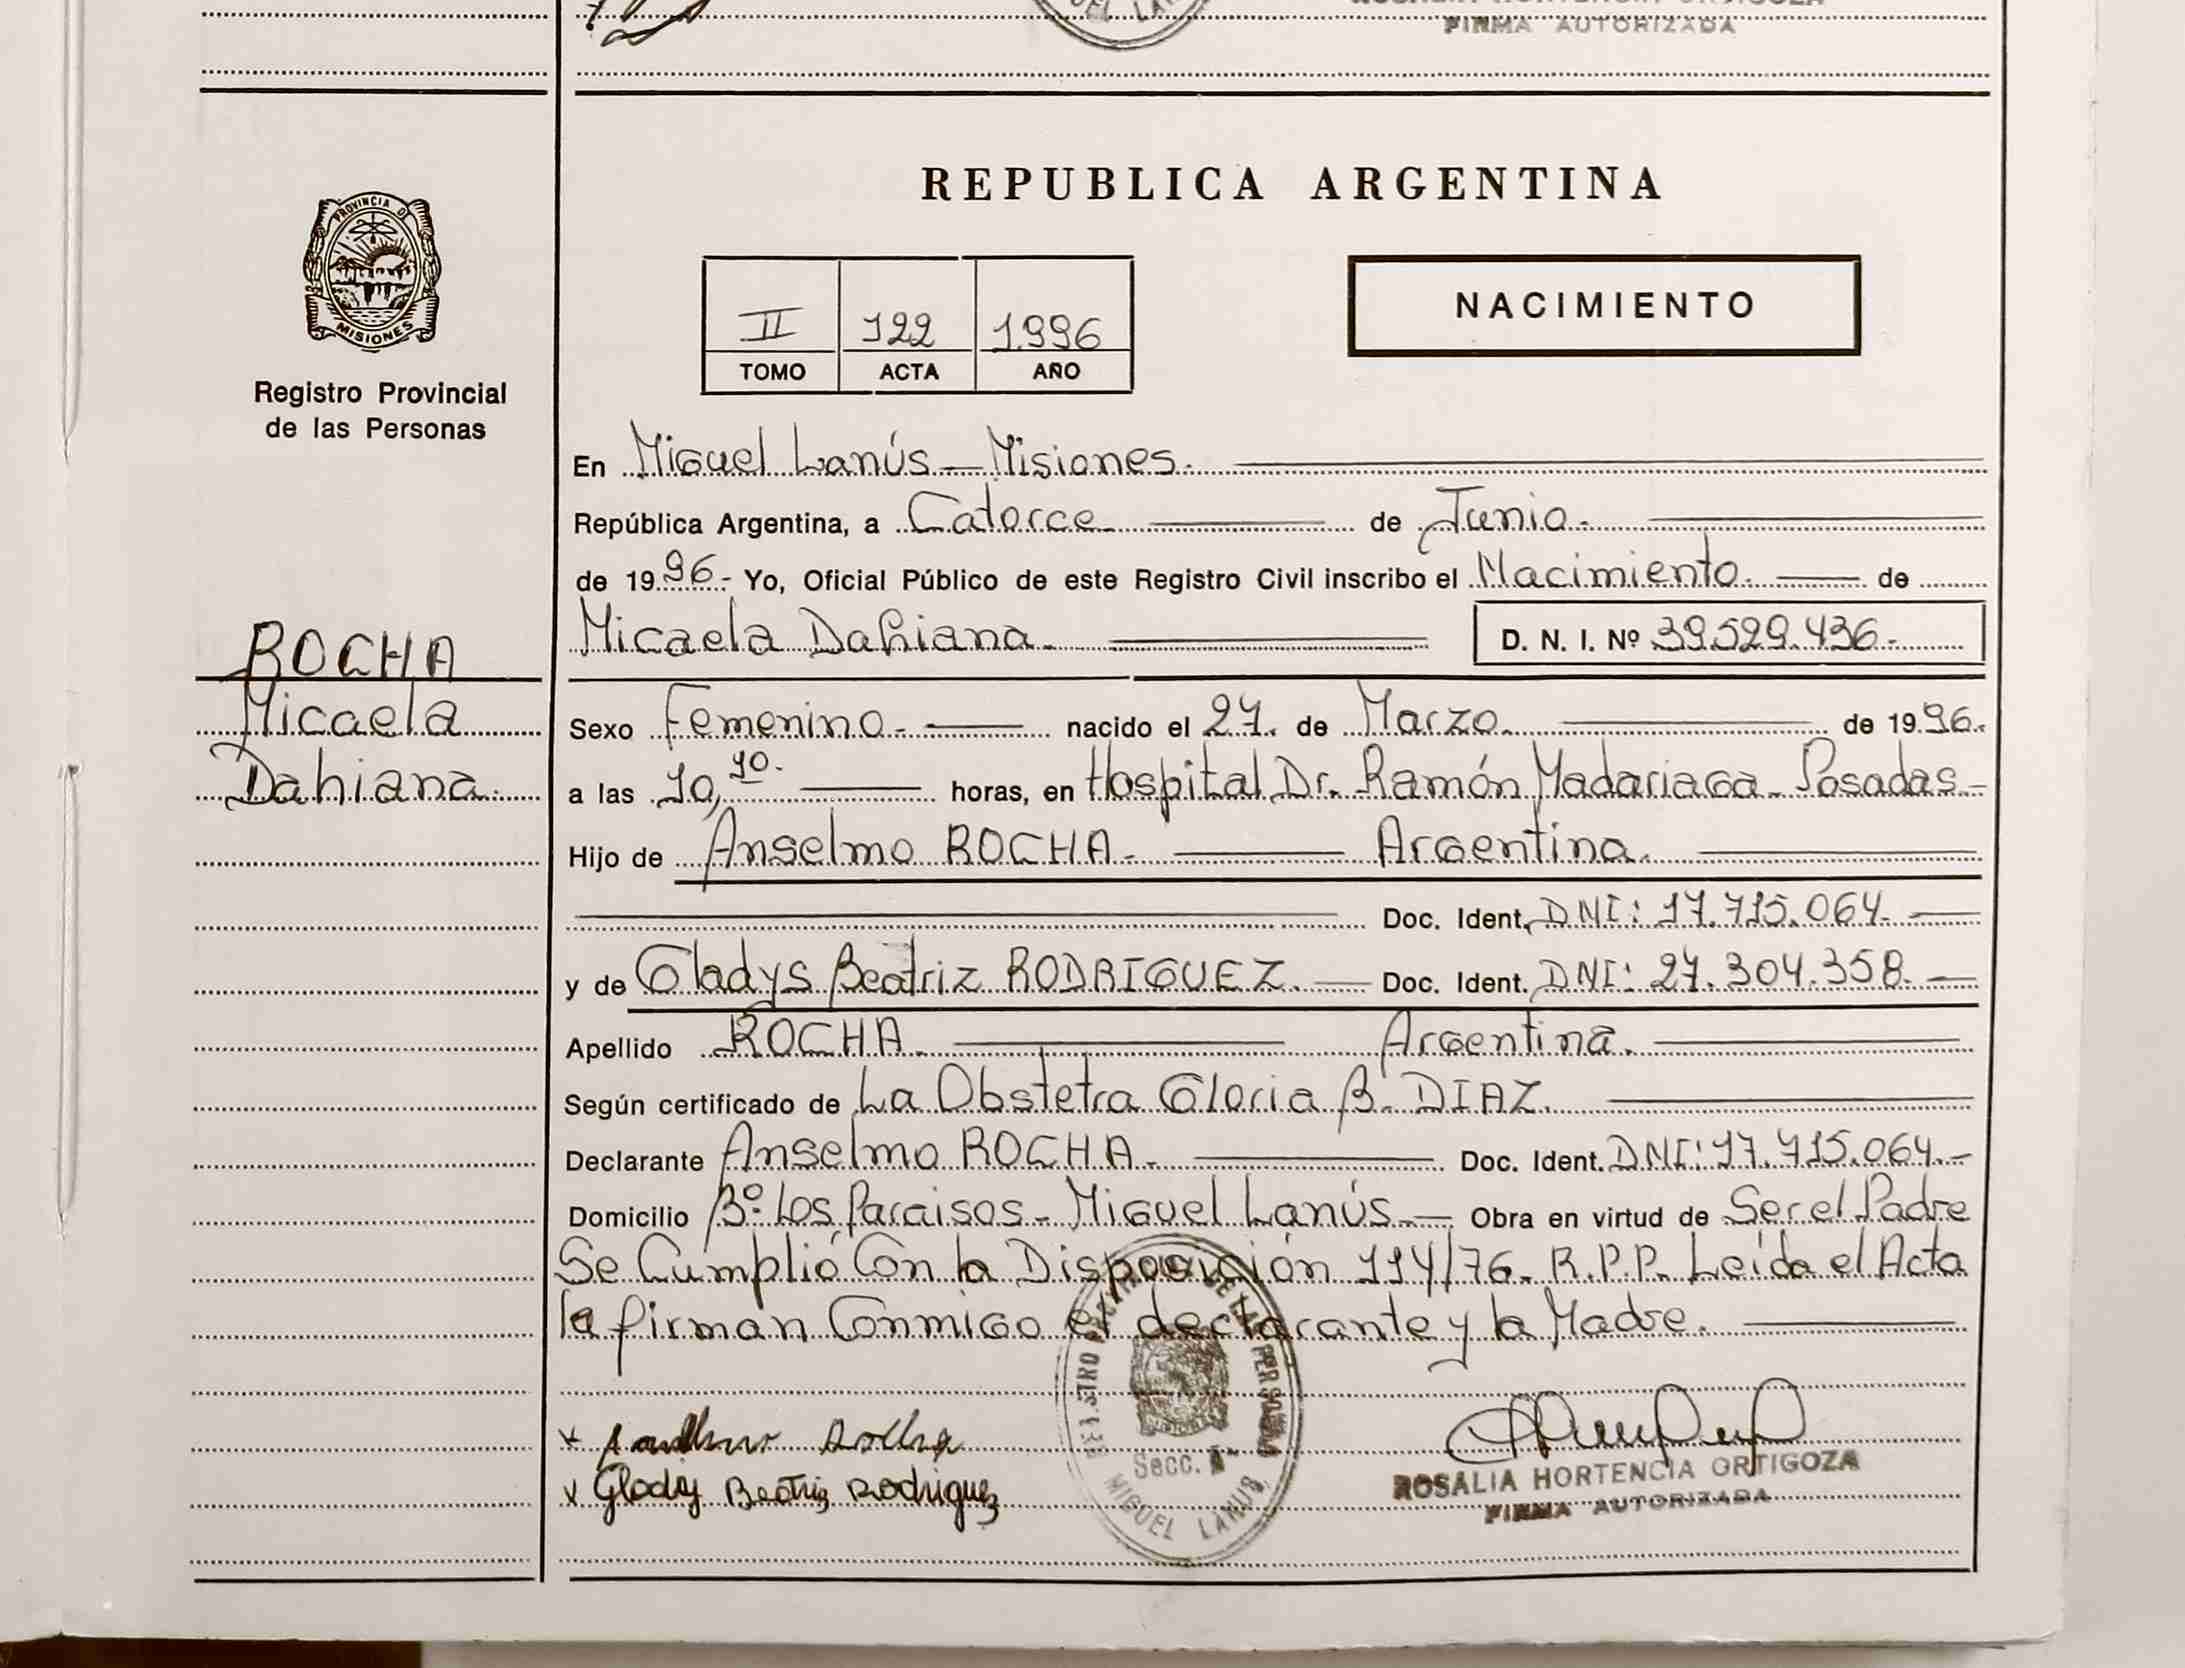 FIRMA AUTORIZADA
REPUBLICA ARGENTINA
PROVINCIA D
MISIONES
Registro Provincial
de las Personas
II 122 1.996
TOMO ACTA AÑO
NACIMIENTO
En Miguel Lanús - Misiones.
República Argentina, a Catorce de Junio.
de 1996.- Yo, Oficial Público de este Registro Civil inscribo el Nacimiento. de
Micaela Dahiana. D. N. I. Nº 39.529.436.-
ROCHA
Micaela
Dahiana.
Sexo Femenino.- nacido el 27. de Marzo. de 1996.
a las 10,10. horas, en Hospital Dr. Ramón Madariaga - Posadas -
Hijo de Anselmo ROCHA.- Argentino.
Doc. Ident. DNI: 17.715.064.
y de Gladys Beatriz RODRIGUEZ. Doc. Ident. DNI: 27.304.358.
Apellido ROCHA. Argentina.
Según certificado de La Obstetra Gloria B. DIAZ.
Declarante Anselmo ROCHA.- Doc. Ident. DNI: 17.715.064.-
Domicilio Bº. Los Paraisos - Miguel Lanús.- Obra en virtud de Ser el Padre
Se Cumplió Con la Disposición 114/76. R.P.P. Leída el Acta
la firman Conmigo el declarante y la Madre.
Rocha
Glady Beatriz Rodriguez
Secc. 1ª
MIGUEL LANUS
ROSALIA HORTENCIA ORTIGOZA
FIRMA AUTORIZADA